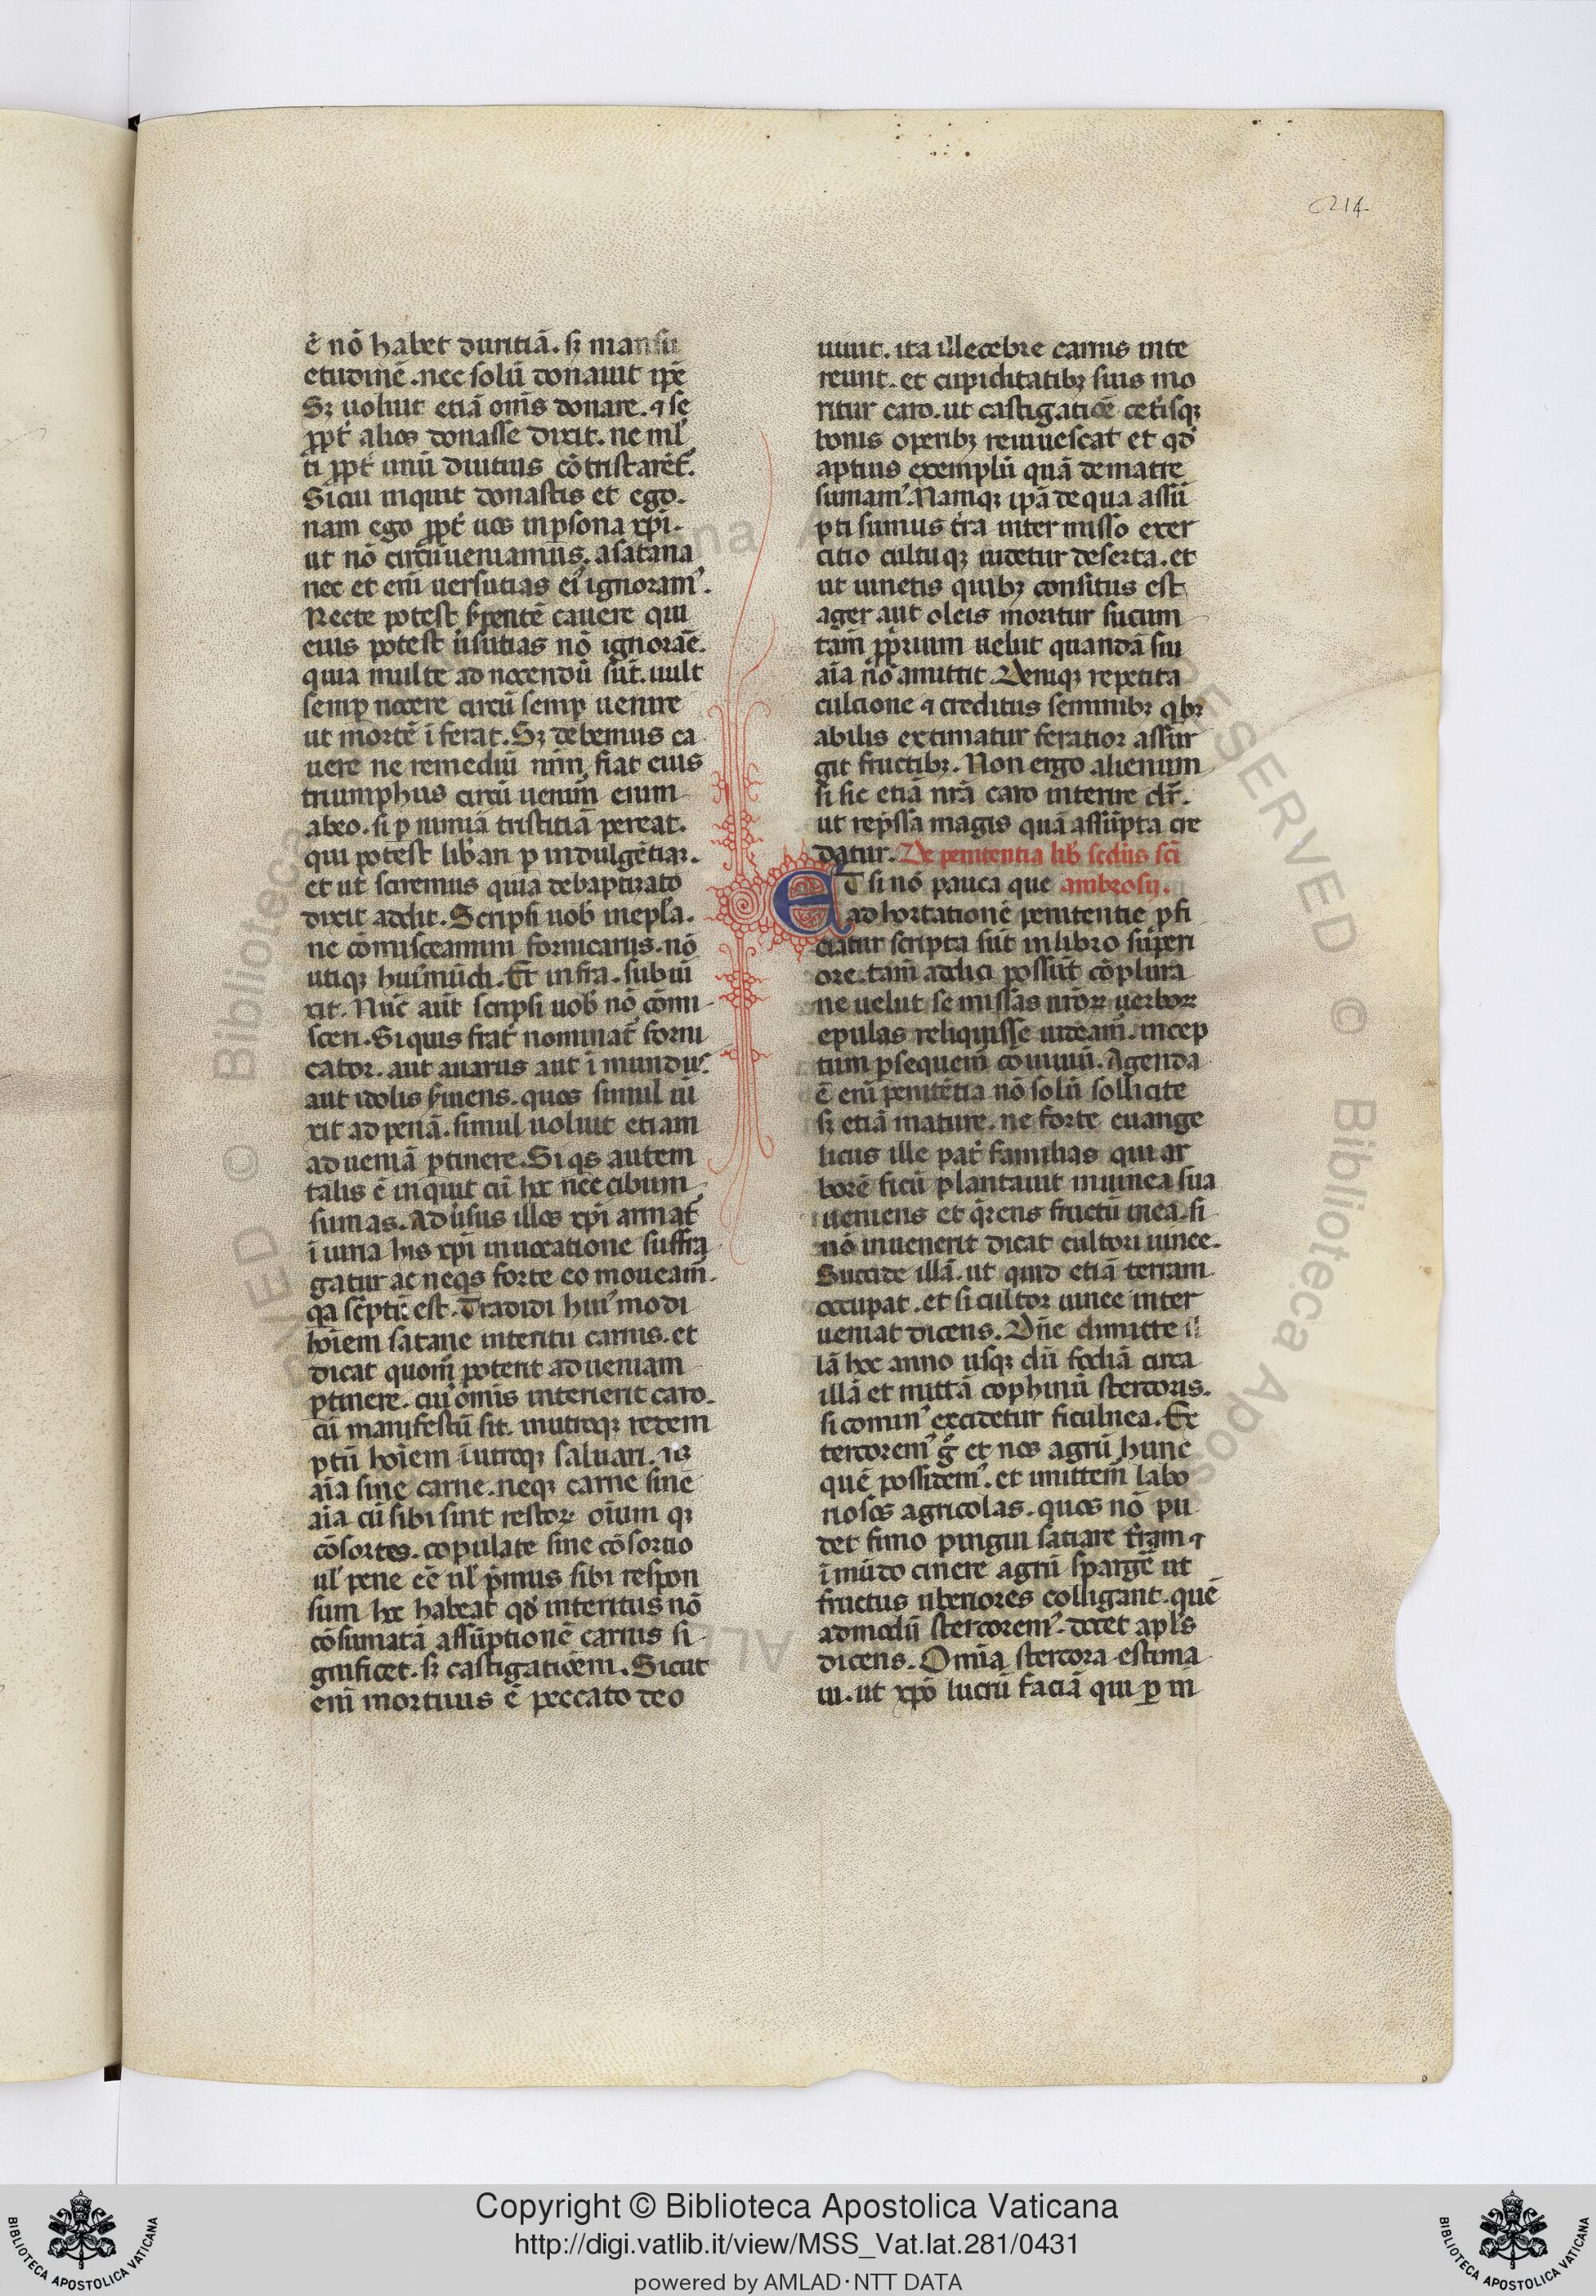 214
ē nō habet duritiā. sꝫ mansu
etudinē. nec solū donauit ip̄e
Sꝫ uoluit etiā om̄s donare. ⁊ se
ꝓpt̄ alios donasse dixit. ne ml̓
ti ꝓpt̄ unū diutius cōtristarēt̄.
Si cui inquit donastis et ego.
nam ego ꝓpt̄ uos in ꝑsona xp̄i.
ut nō circūueniamus. a satana
nec et enī uersutias ei᾿ ignoram᾿.
Recte potest ẜpentē cauere qui
eius potest ū̓sutias nō ignorāe.
quia multe ad nocendū sūt. uult
semꝑ nocere circū semꝑ uenire
ut mortē īferat. Sꝫ debemus ca
uere ne remediū nr̄m fiat eius
triumphus circū uenim̄ enim
ab eo. si ꝑ nimiā tristitiā pereat.
qui potest lib̄ari ꝑ indulgētiaꝫ.
et ut sciremus quia de baptizato
dixit addit. Scripsi uob̄ in epl̓a.
ne cōmisceamini fornicariis. nō
utiqꝫ hui᾿ mūdi. Et infra. subiū
xit. Nūc aūt scripsi uob̄ nō cōmi
sceri. Si quis frat̄ nominat̄ forni
cator. aut auarus aut īmundus
aut idolis ẜuiens. quos simul iū
xit ad penā. simul uoluit etiam
ad ueniā ꝑtinere. Si qs autem
talis ē inquit cū hoc nec cibum
sumas. Adū̓sus illos xp̄i armat̄
īuria his xp̄i inuocatione suffra
gatur ac neqs forte eo moueam̄.
qa sc̄ptū est. Tradidi hui᾿modi
hoīem satane interitu carnis. et
dicat quom̄ poterit ad ueniam
ꝑtinere. cui᾿ omīs interierit caro.
cū manifestū sit. in utroqꝫ redem
ptū hoīem ī utroqꝫ saluari. nꝫ
aīa sine carne. neqꝫ carne sine
aīa cū sibi sint restoꝝ oīum qꝫ
cōsortes. copulate sine cōsortio
ul̓ pene eē ul̓ p̄mus sibi respon
sum hoc habeat qd̓ interitus nō
cōsumatā assūptionē carnis si
gnificet. sꝫ castigatiōem. Sicut
enī mortuus ē peccato deo
uiuit. ita illecebre carnis inte
reunt. et cupiditatibꝫ suis mo
ritur caro. ut castigatiōe cet̄isqꝫ
bonis operibꝫ reuiuescat et qd̓
aptius exemplū quā de matre
sumam᾿. Namqꝫ ip̄a de qua assū
pti sumus t̄ra inter misso exer
citio cultuqꝫ uidetur deserta. et
ut uinetis quibꝫ consitus est
ager aut oleis moritur sucum
tam̄ ꝓprium uelut quandā sui
aīa nō amittit. Deniqꝫ repetita
culcione ⁊ creditus seminibꝫ qbꝫ
abilis extimatur feratior assur
git fructibꝫ. Non ergo alienum
si sic etiā nr̄a caro interire dr̄.
ut rep̄ssa magis quā assūpta cre
datur. De penitentia lib̄ scd̄us sc̄i
ET si nō pauca que ambrosij.
ad hortationē penitentie ꝓfi
ciatur scripta sūt in libro superi
ore. tam̄ addici possūt cōplura
ne uelut se missas nr̄oꝝ uerboꝝ
epulas reliquisse uideam̄. incep
tum ꝑsequem̄ cōuiuiū. Agenda
ē enī penitētia nō solū sollicite
sꝫ etiā mature. ne forte euange
licus ille pat̄ familias qui ar
borē ficū plantauit in uinea sua
ueniens et q̄rens fructū in ea. si
nō inuenerit dicat cultori uinee.
Succide illā. ut quid etiā terram
occupat. et si cultor uinee inter
ueniat dicens. Dn̄e dimitte il
lā hoc anno usqꝫ dū fodiā circa
illā et mittā cophinū stercoris.
si comin᾿ excidetur ficulnea. Ex
tercorem᾿ g̊ et nos agrū hunc
quē possidem᾿. et imittem̄ labo
riosos agricolas. quos nō pu
det fimo pingui satiare t̄ram ⁊
īmūdo cinere agrū spargē ut
fructus uberiores colligant. quē
admodū stercorem᾿. docet apl̓s
dicens. Omīa stercora estima
ui. ut xp̄o lucrū faciā qui ꝑ in
Copyright © Biblioteca Apostolica Vaticana
http://digi.vatlib.it/view/MSS_Vat.lat.281/0431
powered by AMLAD·NTT DATA
BIBLIOTECA APOSTOLICA VATICANA
BIBLIOTECA APOSTOLICA VATICANA